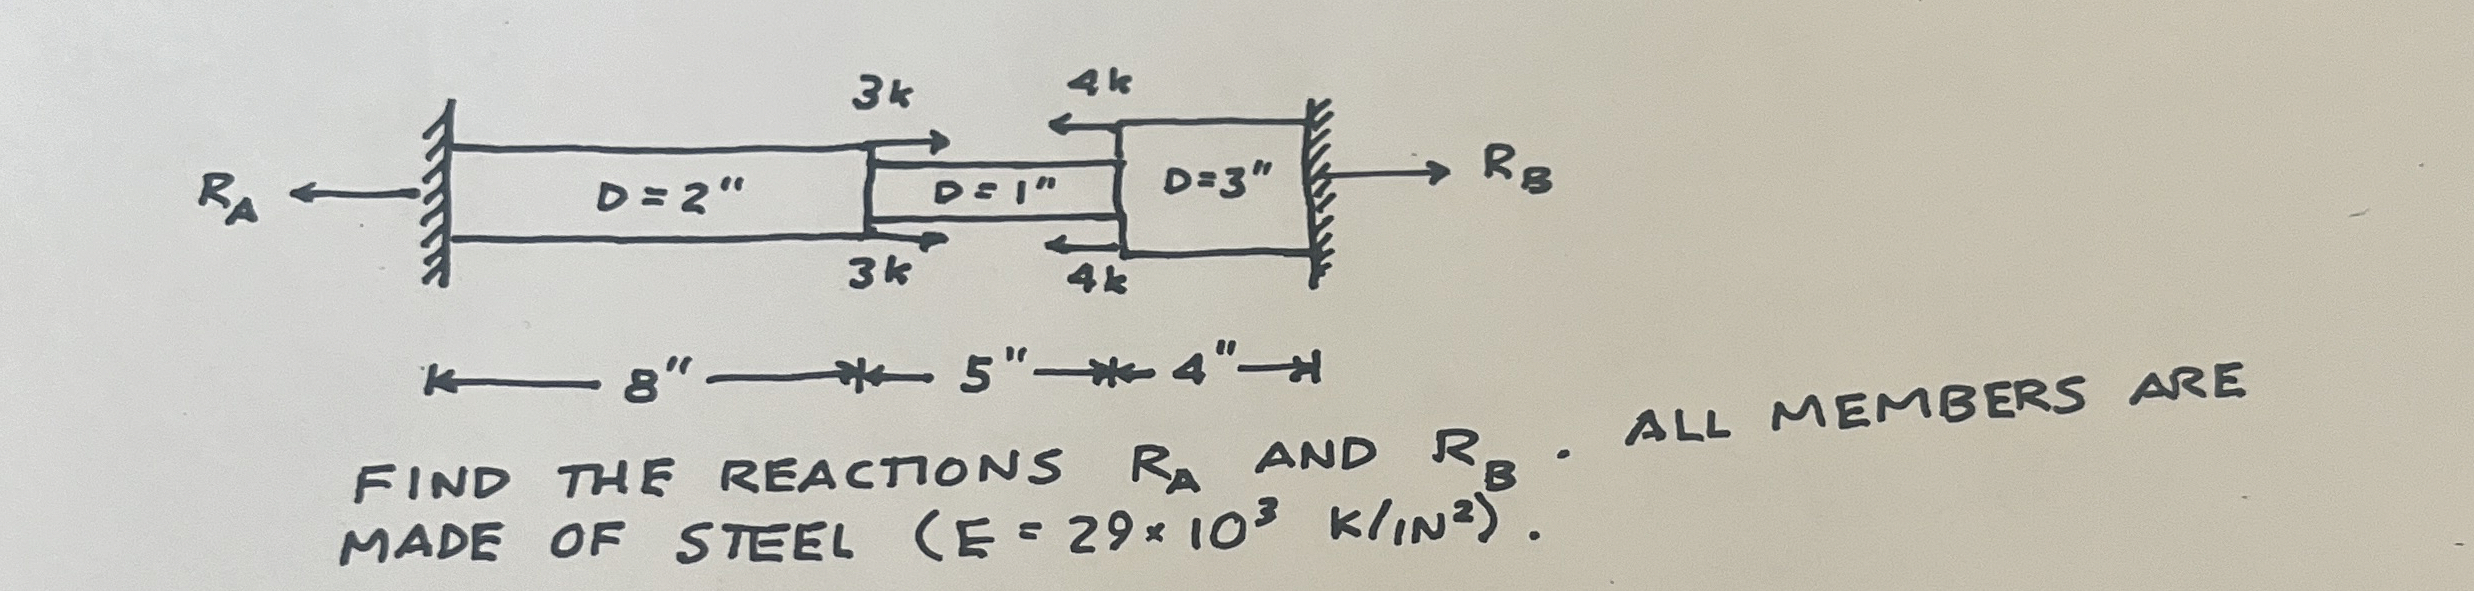 3k 4k
R_A D = 2" D = 1" D=3" R_B
3k 4k
8" 5" 4"
FIND THE REACTIONS R_A AND R_B. ALL MEMBERS ARE
MADE OF STEEL (E = 29×10³ K/IN²).